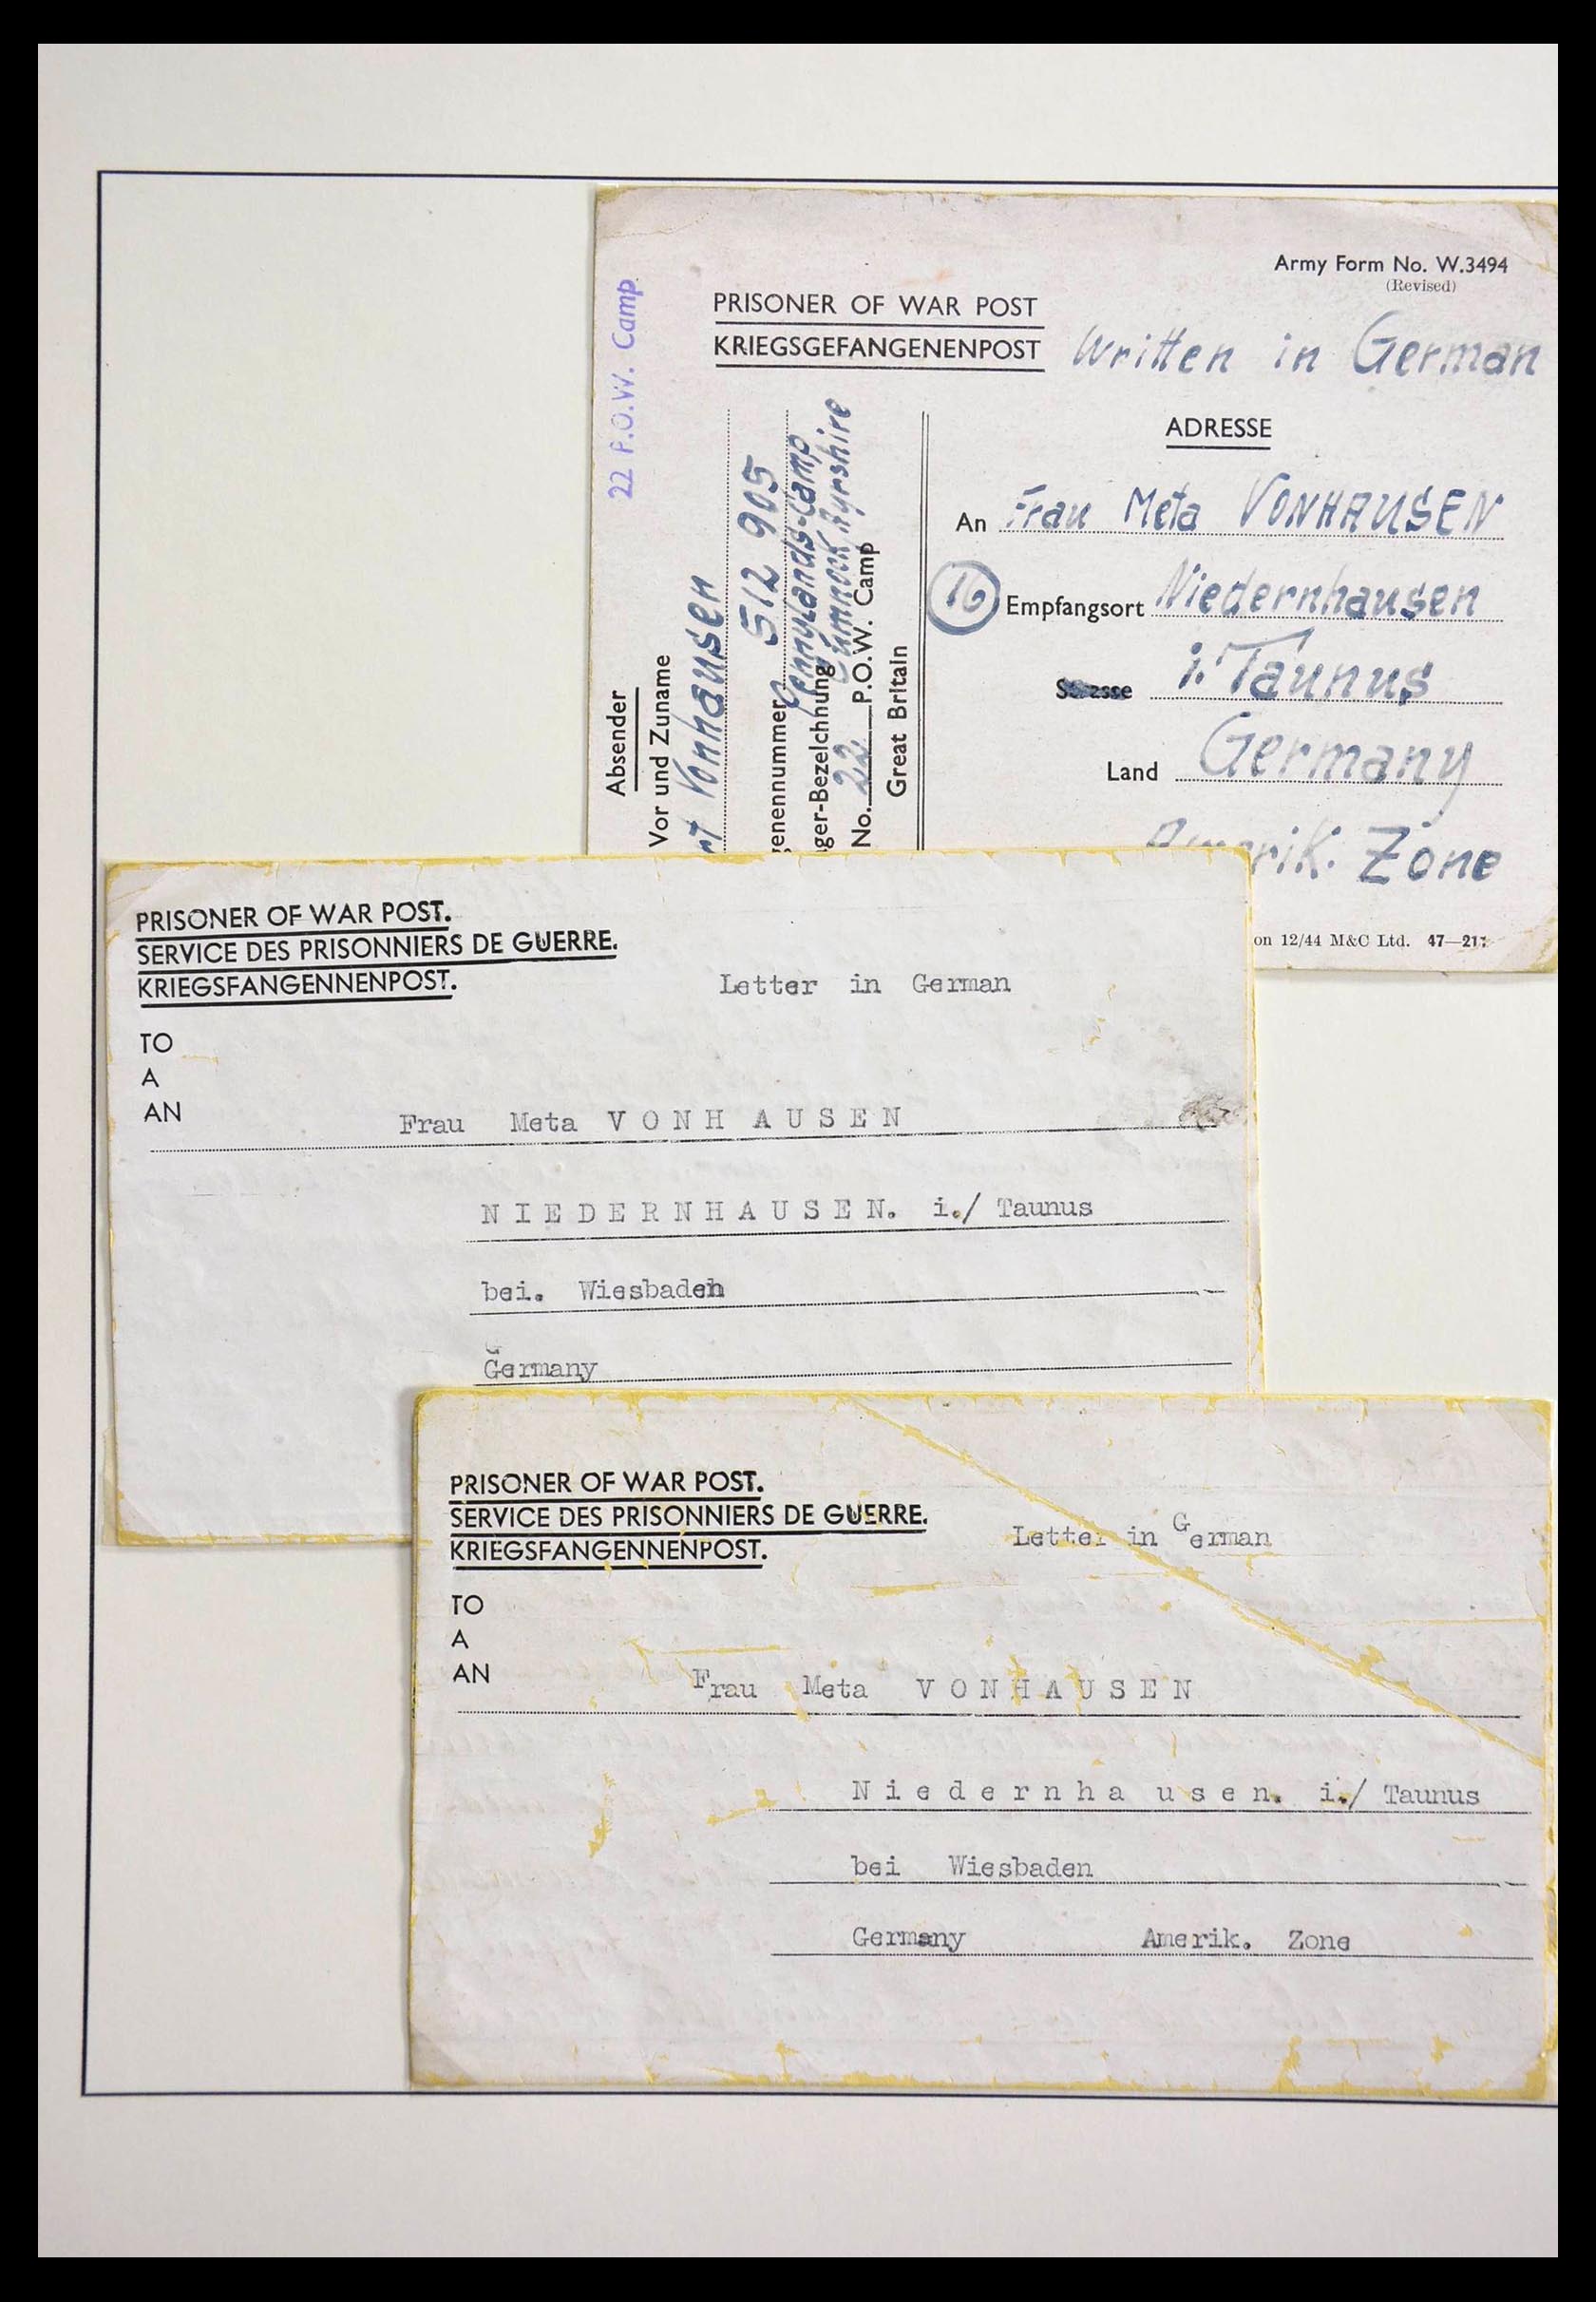 Army Form No. W.3494
(Revised)
PRISONER OF WAR POST
KRIEGSGEFANGENENPOST
Written in German
22 P.O.W. Camp
Absender
Vor und Zuname
rt Vonhausen
genennummer 512 905
ger-Bezeichnung Pennylands-Camp
Cumnock Ayrshire
No. 22 P.O.W. Camp
Great Britain
ADRESSE
An Frau Meta VONHAUSEN
16
Empfangsort Niedernhausen
i. Taunus
Land Germany
Amerik. Zone
on 12/44 M&C Ltd. 47—21
PRISONER OF WAR POST.
SERVICE DES PRISONNIERS DE GUERRE.
KRIEGSFANGENNENPOST.
Letter in German
TO
A
AN
Frau Meta VONHAUSEN
NIEDERNHAUSEN. i./ Taunus
bei. Wiesbaden
Germany
PRISONER OF WAR POST.
SERVICE DES PRISONNIERS DE GUERRE.
KRIEGSFANGENNENPOST.
Letter in German
TO
A
AN
Frau Meta VONHAUSEN
Niedernhausen. i./ Taunus
bei Wiesbaden
Germany Amerik. Zone